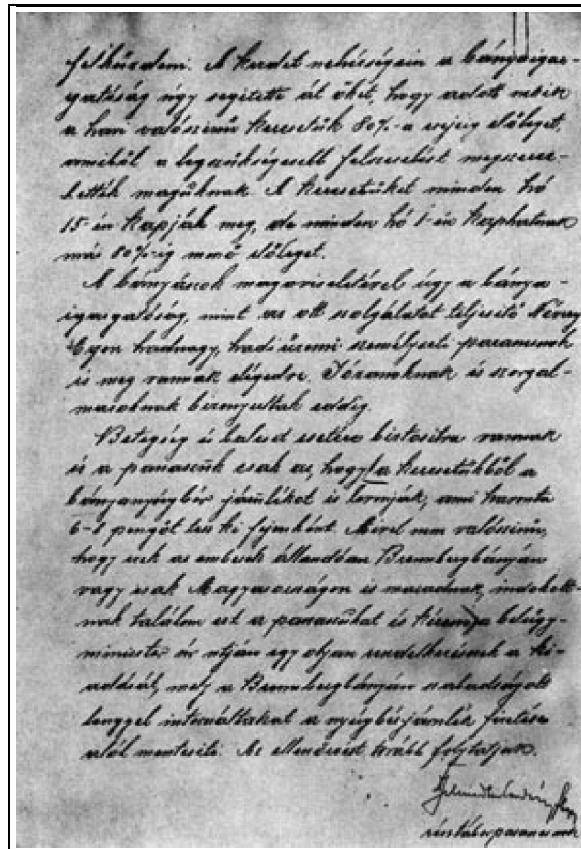 felkűzdeni. A kezdet nehézségein a bányaigaz-
gatóság úgy segítette át őket, hogy adott nekik
a havi valószinü keresetük 80%-a erejéig előleget,
amiből a legszükségesebb felszerelést megszerez-
hették maguknak. A keresetüket minden hó
15-én kapják meg, de minden hó 1-én kaphatnak
már 80%-ig menő előleget.
A bányászok magaviseletével úgy a bánya-
igazgatóság, mint az ott szolgálatot teljesítő
hadnagy, hadi üzemi személyzeti parancsnok
is meg vannak elégedve. Józanoknak és szorgal-
masoknak bizonyultak eddig.
Betegség és baleset esetére biztositva vannak
és a panaszuk csak az, hogy a keresetükből a
bányanyugbér járulékot is levonják, ami havonta
6-8 pengőt tesz ki fejenként. Mivel nem valószinü,
hogy ezek az emberek állandóan Brennbergbányán
vagy csak Magyarországon is maradnak, indokolt-
nak találom ezt a panaszukat és kérem a belügy-
miniszter úr utján egy olyan rendelkezésnek a ki-
adását, mely a Brennbergbányán szabadságolt
lenggel internáltakat a nyugbérjárulék fizetése
alól mentesíti. Az ellenőrzést tovább folytatjuk.
parancsnok